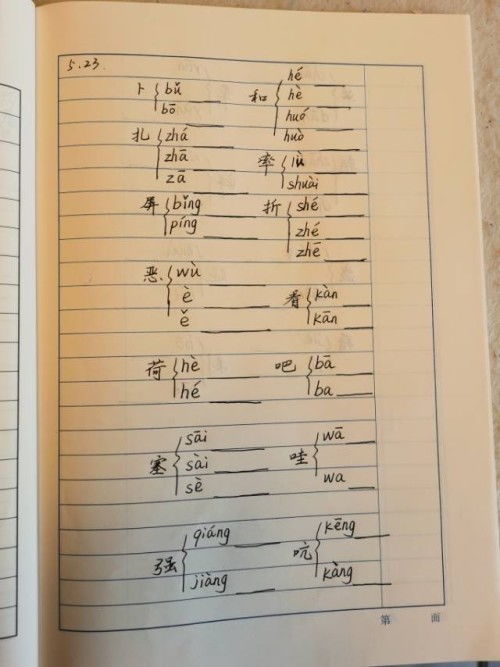 5.23.
卜 bǔ
bō
和 hé
hè
huó
huò
扎 zhá
zhā
zā
率 lǜ
shuài
屏 bǐng
píng
折 shé
zhé
zhē
恶 wù
è
ě
看 kàn
kān
荷 hè
hé
吧 bā
ba
塞 sāi
sài
sè
哇 wā
wa
强 qiáng
jiàng
吭 kēng
káng
第 面